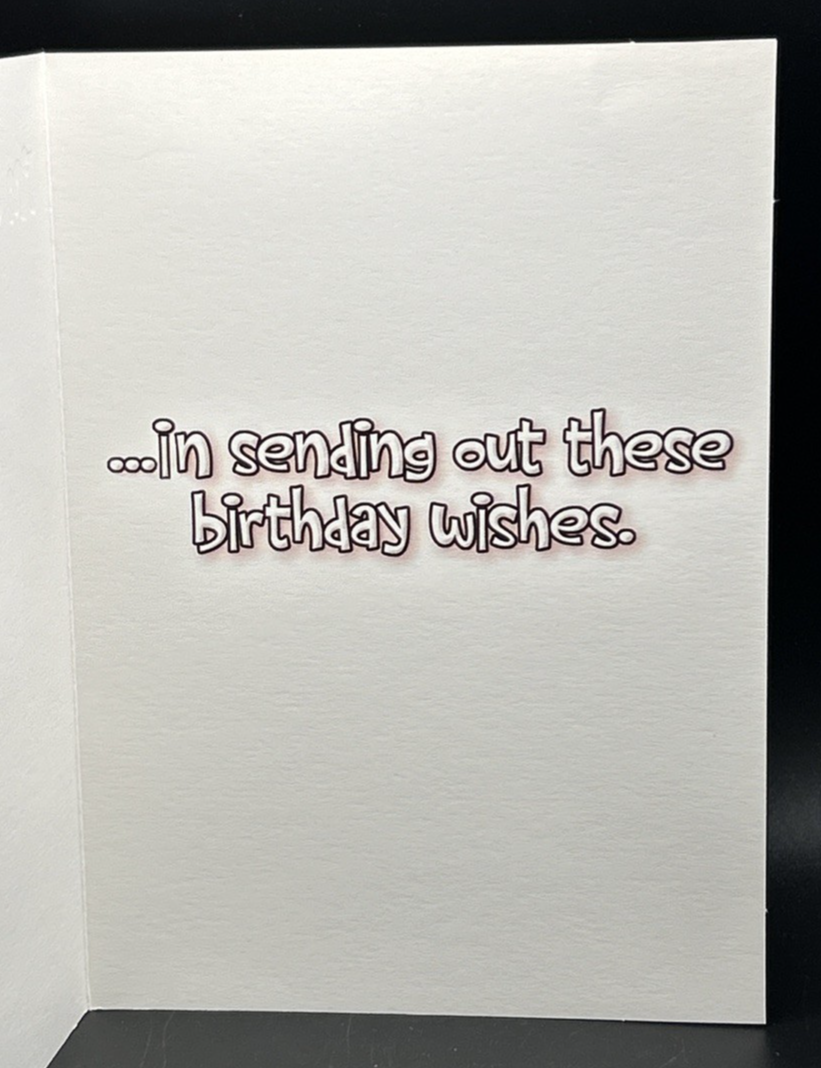 ...in sending out these
birthday wishes.